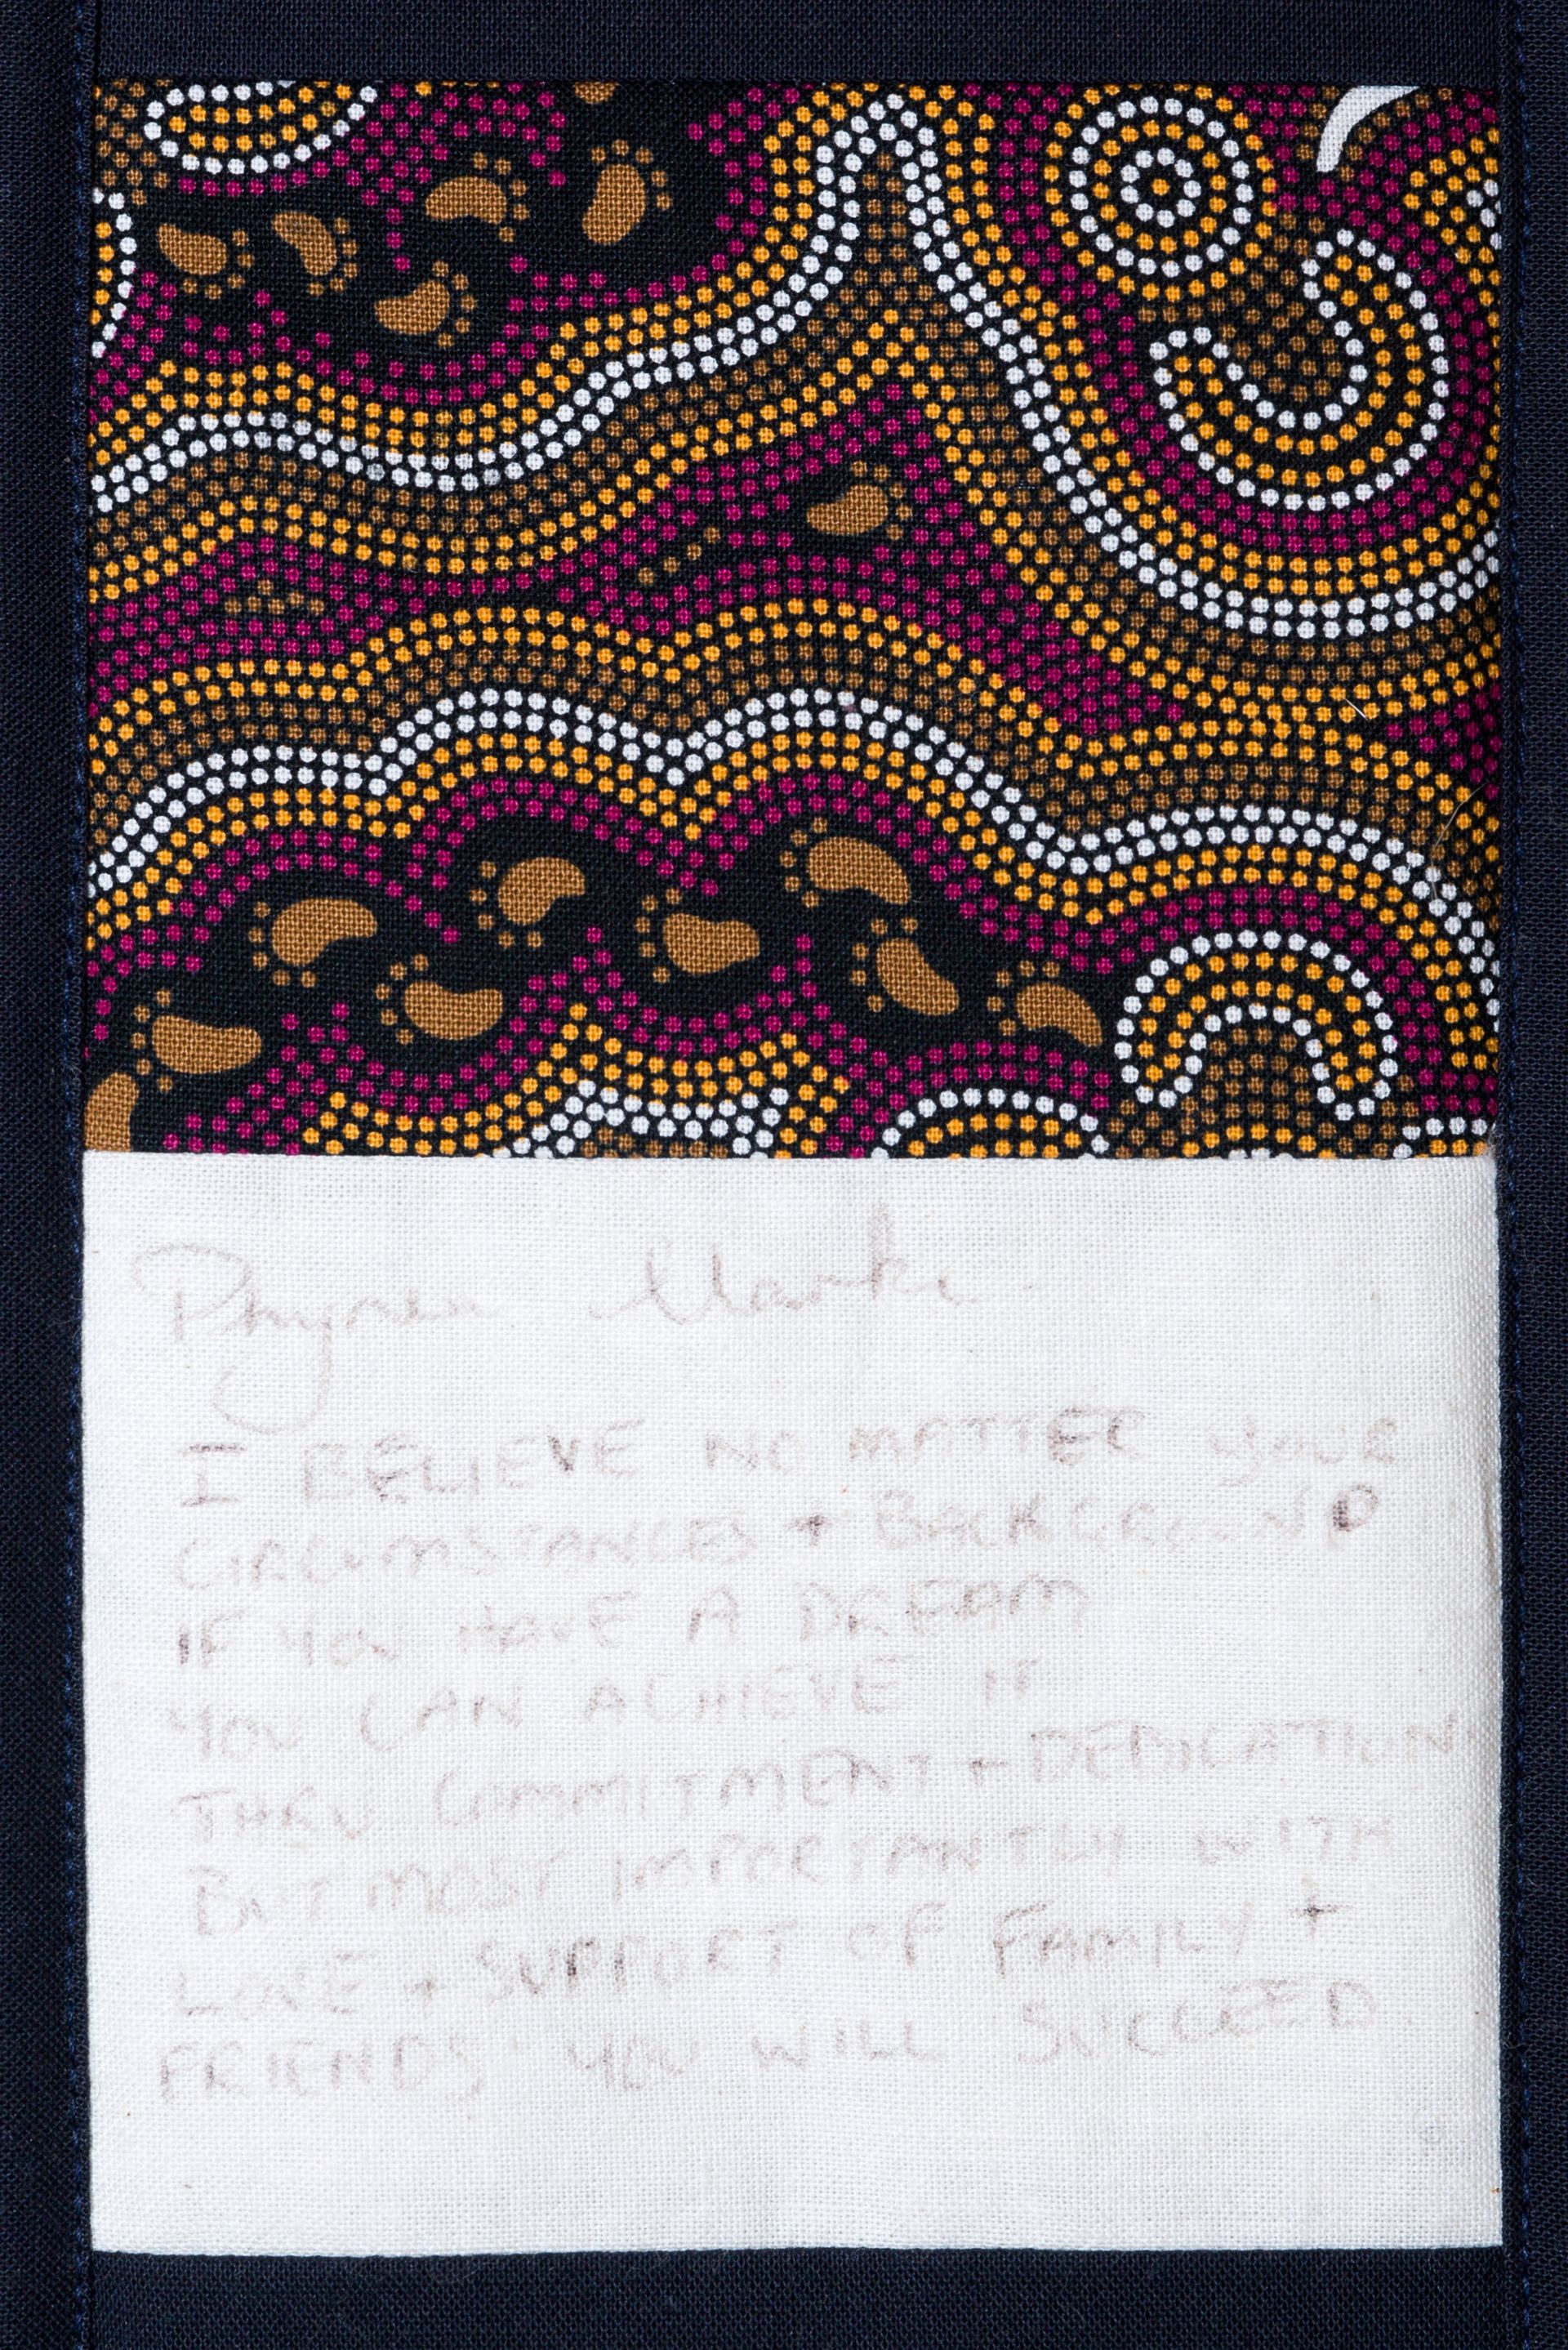 I BELIEVE NO MATTER YOUR
CIRCUMSTANCES + BACKGROUND
IF YOU HAVE A DREAM
YOU CAN ACHIEVE IT
THRU COMMITMENT + DEDICATION
BUT MOST IMPORTANTLY WITH
LOVE + SUPPORT OF FAMILY +
FRIENDS YOU WILL SUCCEED